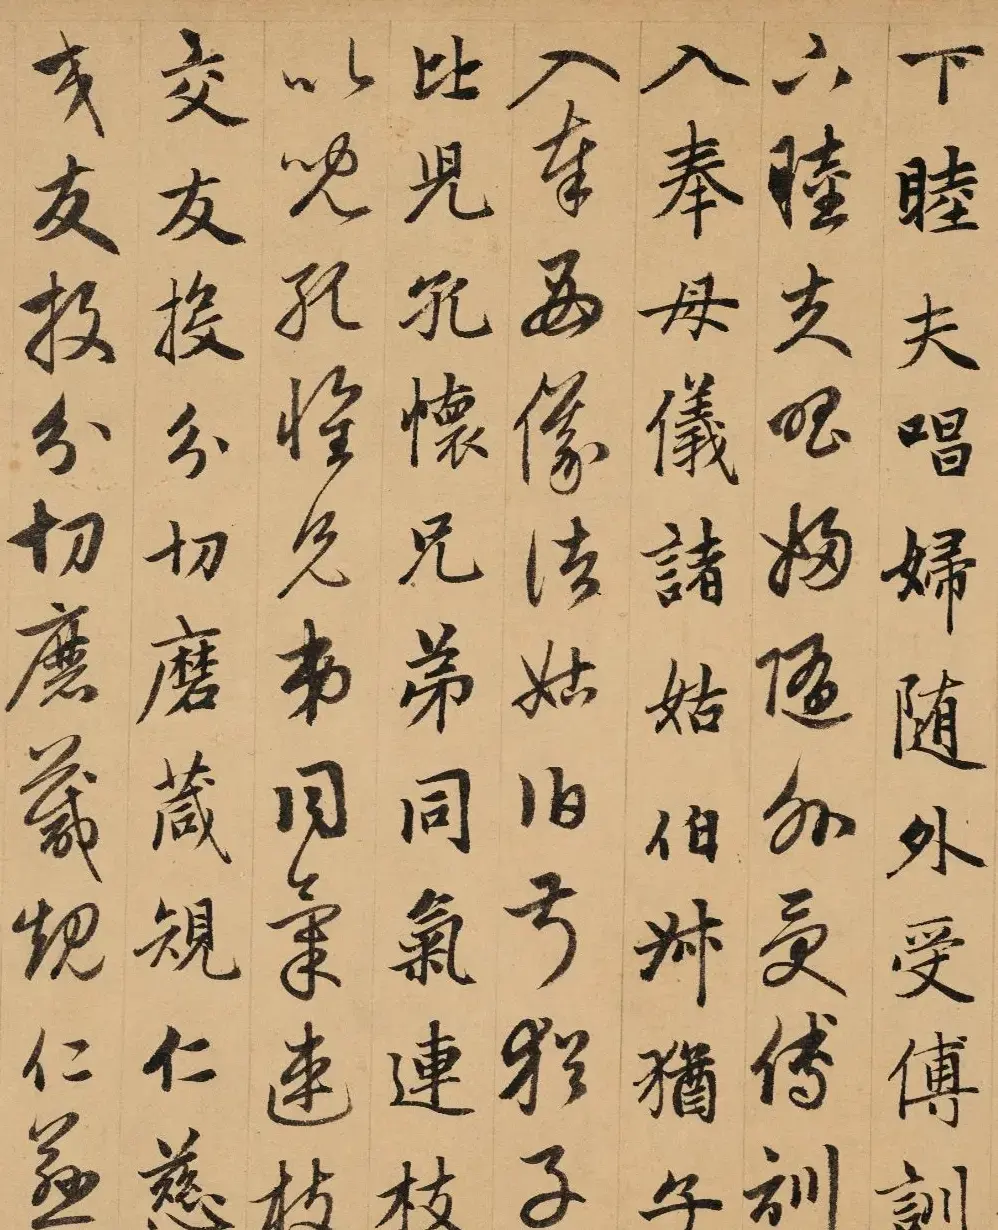 下睦夫唱婦随外受傅訓
下睦夫唱婦随外受傅訓
入奉母儀諸姑伯叔猶子
入奉母儀諸姑伯叔猶子
比兒孔懷兄弟同氣連枝
比兒孔懷兄弟同氣連枝
交友投分切磨葴規仁慈
交友投分切磨葴規仁慈